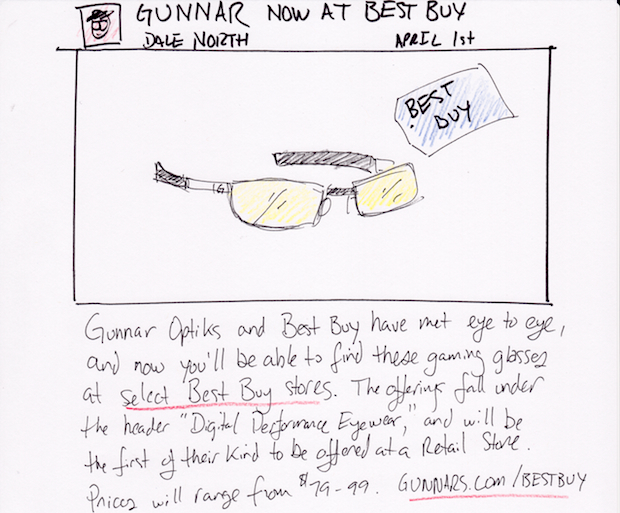 GUNNAR NOW AT BEST BUY
DALE NORTH APRIL 1st
BEST
BUY
G
Gunnar Optiks and Best Buy have met eye to eye,
and now you'll be able to find these gaming glasses
at select Best Buy stores. The offerings fall under
the header "Digital Performance Eyewear," and will be
the first of their kind to be offered at a Retail Store.
Prices will range from $79-99. GUNNARS.COM/BESTBUY